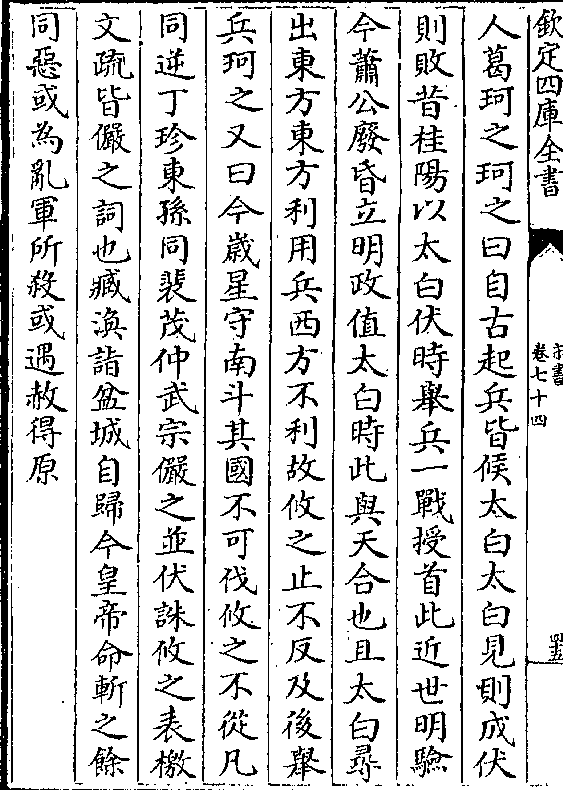 欽定四庫全書
宋書
卷七十四
人葛珂之珂之曰自古起兵皆候太白太白見則成伏
則敗昔桂陽以太白伏時舉兵一戰授首此近世明驗
今蕭公廢昏立明政值太白時此與天合也且太白尋
出東方東方利用兵西方不利故攸之止不反及後舉
兵珂之又曰今歲星守南斗其國不可伐攸之不從凡
同逆丁珍東孫同裴茂仲武宗儼之並伏誅攸之表檄
文疏皆儼之詞也臧渙詣盆城自歸今皇帝命斬之餘
同惡或為亂軍所殺或遇赦得原